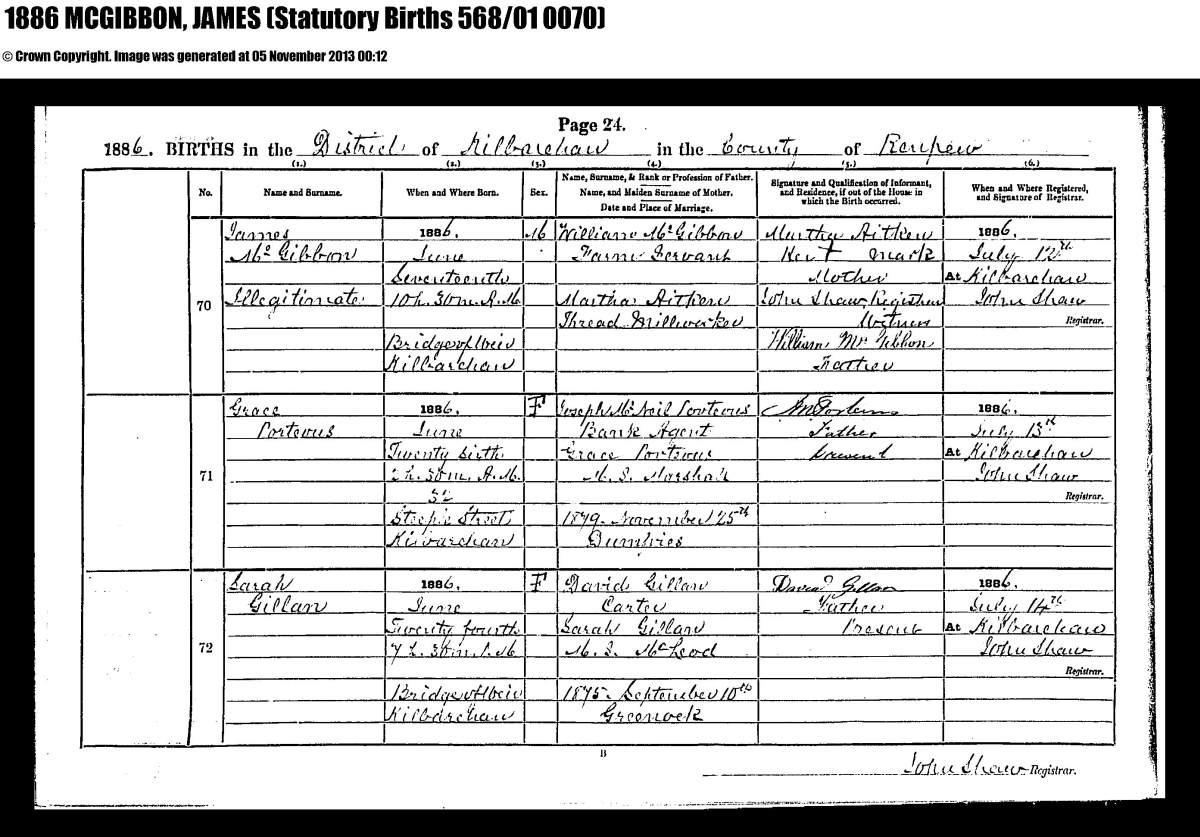 1886 MCGIBBON, JAMES (Statutory Births 568/01 0070)
© Crown Copyright. Image was generated at 05 November 2013 00:12
Page 24.
1886. BIRTHS in the District of Kilbarchan in the County of Renfrew
(1.) (2.) (3.) (4.) (5.) (6.)
No.
Name and Surname.
When and Where Born.
Sex.
Name, Surname, & Rank or Profession of Father.
Name, and Maiden Surname of Mother.
Date and Place of Marriage.
Signature and Qualification of Informant,
and Residence, if out of the House in
which the Birth occurred.
When and Where Registered,
and Signature of Registrar.
70
James
McGibbon
Illegitimate
1886.
June
Seventeenth
10h. 30m. A.M.
Bridge of Weir
Kilbarchan
M
William McGibbon
Farm Servant
Martha Aitken
Thread Millworker
Martha Aitken
Her + mark
Mother
John Shaw, Registrar
Witness
William McGibbon
Father
1886.
July 12th
At Kilbarchan
John Shaw
Registrar.
71
Grace
Porteous
1886.
June
Twenty sixth
2h. 30m. A.M.
Steeple Street
Kilbarchan
F
Joseph McNeil Porteous
Bank Agent
Grace Porteous
M.S. Marshall
1879. November 25th
Dumfries
Father
Present
1886.
July 13th
At Kilbarchan
John Shaw
Registrar.
72
Sarah
Gillan
1886.
June
Twenty fourth
7h. 30m. P.M.
Bridge of Weir
Kilbarchan
F
David Gillan
Carter
Sarah Gillan
M.S. McLeod
1875. September 10th
Greenock
David Gillan
Father
Present
1886.
July 14th
At Kilbarchan
John Shaw
Registrar.
B
John Shaw Registrar.